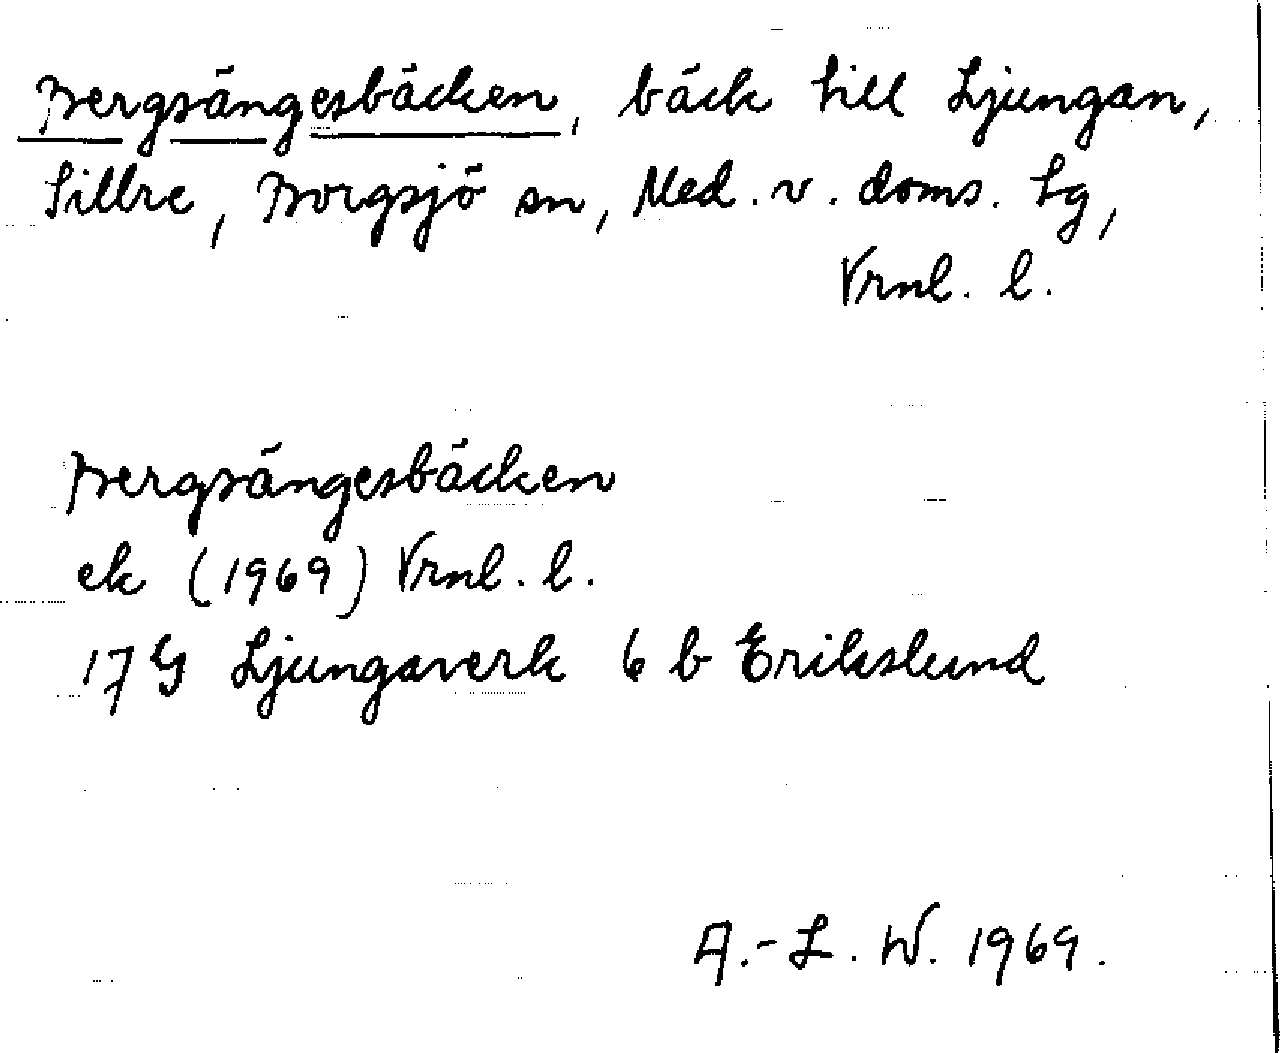 Bergsängesbäcken, bäck till Ljungan,
Sillre, Borgsjö sn, Med. v. doms. tg,
Vrnl. l.
Bergsängesbäcken
ek (1969) Vrnl. l.
17G Ljungaverk 6 b Erikslund
A.-L. W. 1969.